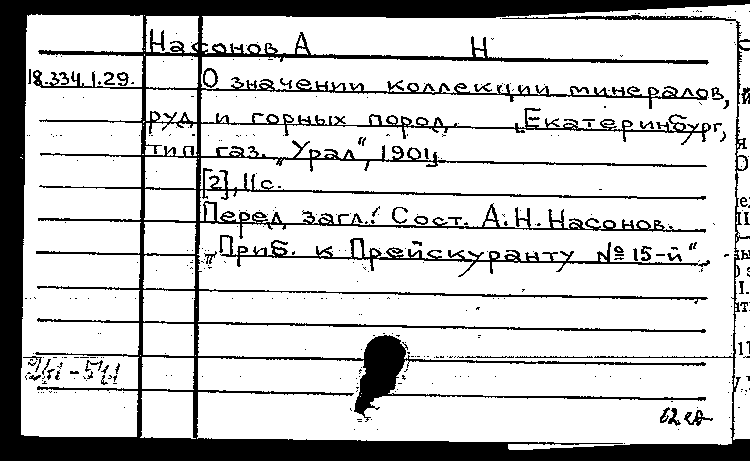 Насонов, А Н
18.334.1.29.
О значении коллекции минералов,
руд и горных пород. Екатеринбург,
тип. газ. „Урал“, 1904.
[2], 11 с.
Перед загл.: Сост. А. Н. Насонов.
„Приб. к Прейскуранту № 15-й“.
241-541